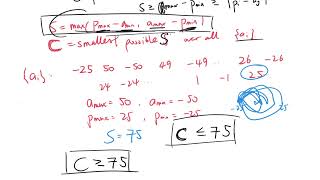 S = max{ Pmax - amin, amax - Pmin }
C = smallest possible S over all {ai}
{ai} -25 50 -50 49 -49 ... 26 -26
24 -24 ... 1 -1 25
amax = 50, amin = -50
Pmax = 25, Pmin = -25
-25 25
S = 75
C ≤ 75
C ≥ 75